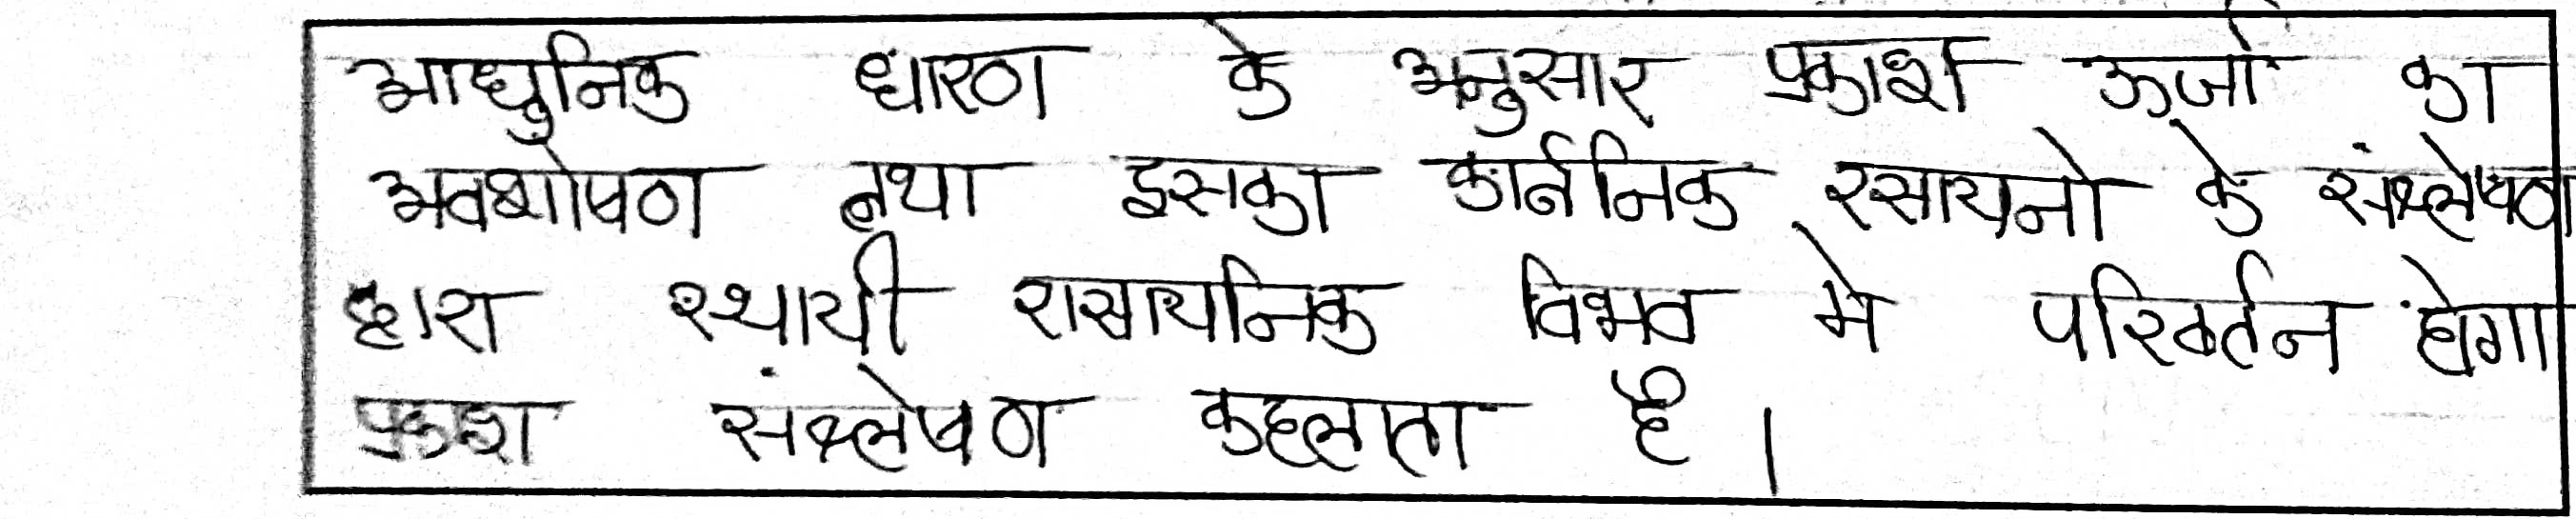 आधुनिक धारणा के अनुसार प्रकाश ऊर्जा का
अवशोषण तथा इसका कार्बनिक रसायनो के संश्लेषण
द्वारा स्थायी रासायनिक विभव मे परिवर्तन होगा
प्रकाश संश्लेषण कहलाता है।